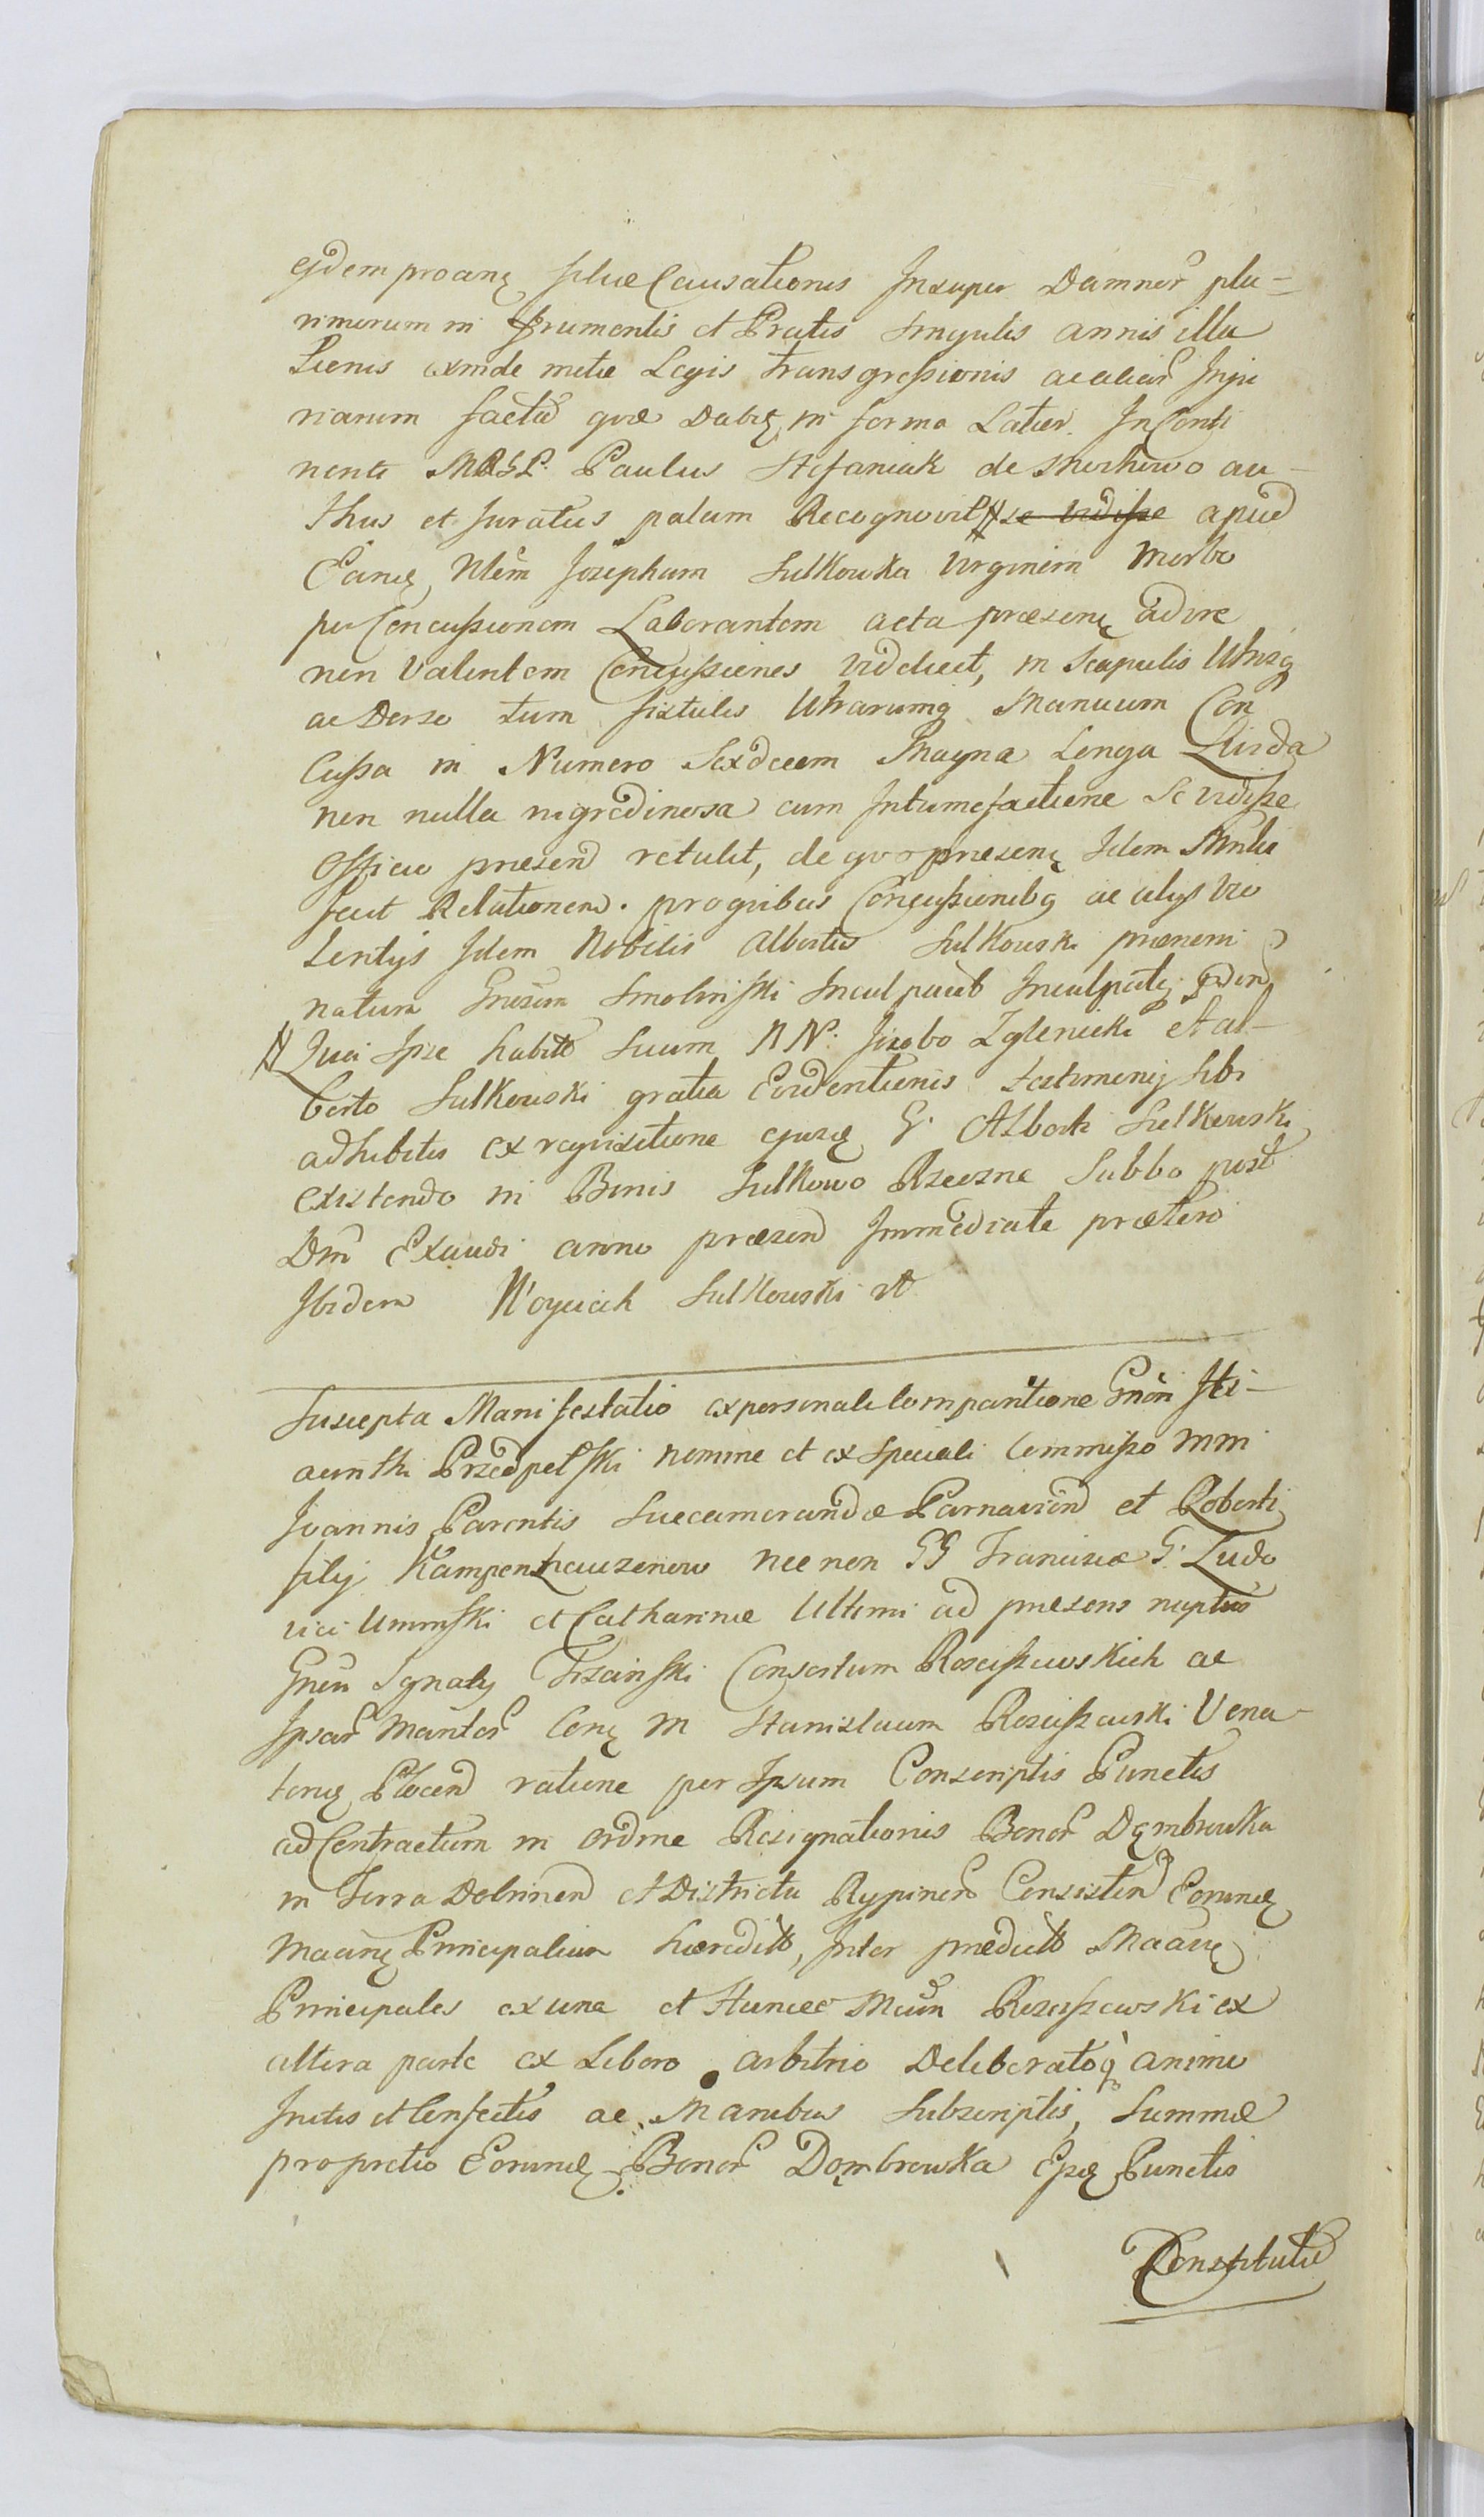 ejdem proanę sylvæ Causationis Insuper Damnor plu-
rimorum in frumentis et Pratis singulis annis illa
tionis exinde metæ Legis transgressionis ac aliar Inju
riarum facta qvæ Dabit in forma Latior. InConti
nenti MRGP. Paulus Stefaniak de au-
thus et juratus palam Recognovit # se vidisse apud
Eamę Nlem Josepham Sulkowska Virginem Morbo
per Concussionem Laborantem acta præsenę adire
non Valentem Concussiones videlicet, in Scapulis Utrisq
ac Dorso tum fistulis Utrarumq Manuum Con
cussa in Numero Sexdecem Magna Longa Livida
non nulla nigredinosa cum Intumefactione Se vidisse
Officio præsend retulit, de qvo præsenę Idem Minlis
fecit Relationem. pro qvibus Concussionibq ac alys vio
lentys Idem Nobilis Albertus Sulkowski prænomi
natum Gnosum Smolinski Inculpavit Inculpatę
# Qui Ipse habitis Secum NN. Jacobo Zglenicki et Al-
berto Sulkowski gratia Evidentionis testimonij Sibi
adhibitis ex reqvisitione ejusę G. Alberti Sulkowski
existendo in Bonis Sulkowo Rzeczne Sabbo post
Dm Exaudi anno præsend Immediate præterio
Ibidem Woyciech Sulkowski
Suscepta Manifestatio ex personali Comparitione Gnosi Hi-
acinthi Przedpelski nomine et ex Speciali Commisso MM
Joannis Parentis Succamerandæ Parnavien et Roberti
filij Kampenhauzenow nec non GG Franciscæ G. Ludo
vici Uminski et Catharinæ Ultimi ad præsens nuptæ
Gnosi Ignatij Trzcinski Consortum Rosciszewskich ac
Ipsar Maritor Conę M Stanislaum Rosciszewski Vena-
torię Plocen ratione per Ipsum Conscriptis Punctis
ad Contractum in ordine Resignationis Bonor Dąmbrowka
in Terra Dobrinen et Districtu Rypinen Consisten Eorundę
Maanę Principalium hæredit, Inter prædictt Maanę
Principales ex una et Huncce Mcum Rosciszewski ex
altera parte ex Libero arbitrio Deliberatoq animo
Initis et Confectis ac Manibus Subscriptis, Summæ
pro pretio Eorundę Bonor Dąmbrowka Ejsę Punctis
Constitutæ